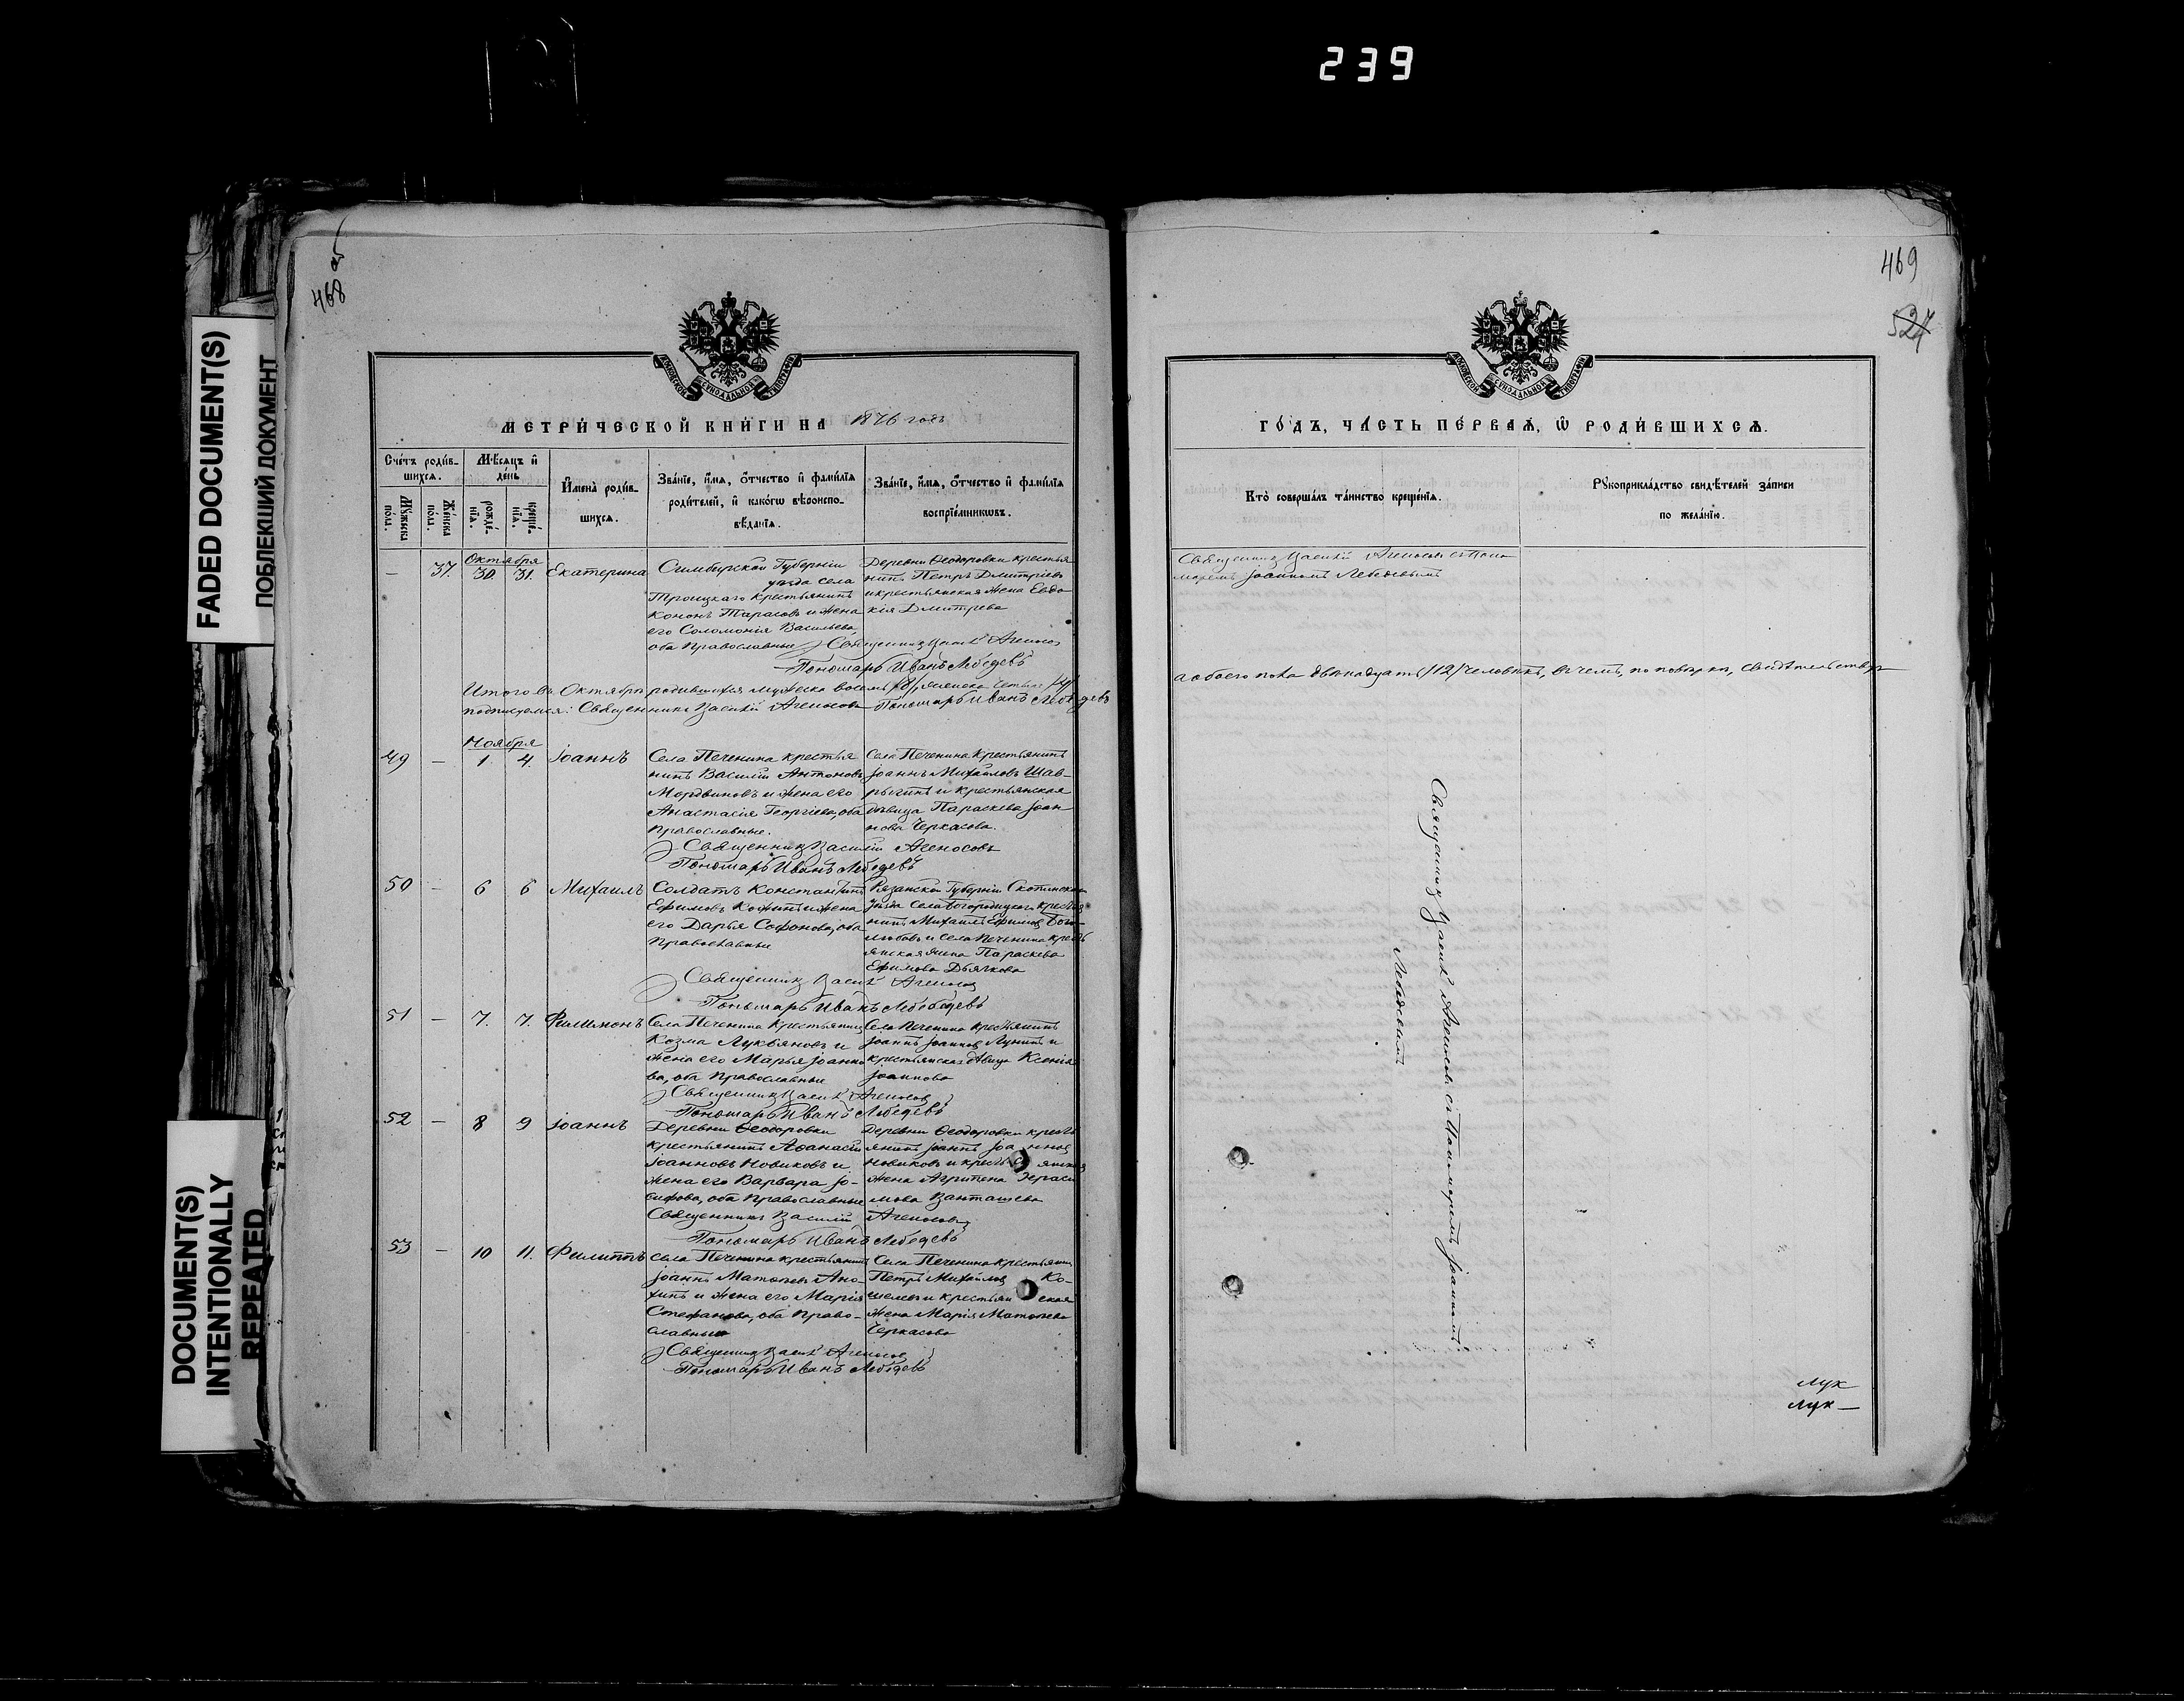 239
FADED DOCUMENT(S)
ПОБЛЕКШИЙ ДОКУМЕНТ
DOCUMENT(S)
INTENTIONALLY
REPEATED
468 об
МОСКОВСКОЙ СѴНОДАЛЬНОЙ ТИПОГРАФІИ
МЕТРИ́ЧЕСКОЙ КНИ́ГИ НА 1876 годъ
Сче́тъ роди́в-
шихсѧ.
Мѣ́сѧцъ и҆
де́нь
И҆мена̀ роди́в-
шихсѧ.
Зва́нїе, и҆́мѧ, ѻ҆́тчество и҆ фами́лїѧ
роди́телей, и҆ како́гѡ вѣ̀роиспо-
вѣ́данїѧ.
Зва́нїе, и҆́мѧ, ѻ҆́тчество и҆ фами́лїѧ
воспрїе́мникѡвъ.
Мꙋ́жеска
по́ла.
Же́нска
по́ла.
рожде́-
нїѧ.
креще́-
нїѧ.
Октября
— 37. 30. 31. Екатерина
Симбирской Губерніи
уѣзда села
Троицкаго крестьянинъ
Кононъ Тарасовъ и жена
его Соломонія Васильева,
оба Православные
Деревни Ѳеодоровки крестья
нинъ Петръ Дмитріевъ
и крестьянская жена Евдо
кія Дмитрева
Священникъ Василій Агносовъ
Пономарь Иванъ Лебедевъ
Итого въ Октябрѣ родившихся мужеска восемь (8), женска четыре (4)
подписуемся: Священникъ Василій Агносовъ Пономарь Иванъ Лебедевъ
Ноября
49 — 1. 4. Іоаннъ
Села Печенина крестья
нинъ Василій Антоновъ
Мордвиновъ и жена его
Анастасія Георгіева, оба
Православные.
Села Печенина Крестьянинъ
Іоаннъ Михайловъ Шав-
рыгинъ и крестьянская
дѣвица Параскева Іоан
нова Черкасова.
Священникъ Василій Агносовъ
Пономарь Иванъ Лебедевъ
50 — 6 6 Михаилъ
Солдатъ Константинъ
Ефимовъ и жена
его Дарья Софонова, оба
Православные
Рязанской Губерніи Скопинскаго
Уѣзда Села Богородицкаго крестья
нинъ Михаилъ Ефимовъ Бого-
любовъ и Села Печенина кресть
янская жена Параскева
Ефимова Дьячкова
Священникъ Василій Агносовъ
Пономарь Иванъ Лебедевъ
51 — 7. 7. Филимонъ
Села Печенина Крестьянинъ
Козма Лукьяновъ и
жена его Марья Іоанно
ва, оба Православные
Села Печенина крестьянинъ
Іоаннъ Іоанновъ Лунинъ и
крестьянская дѣвица Ксенія
Іоаннова
Священникъ Василій Агносовъ
Пономарь Иванъ Лебедевъ
52 — 8 9 Іоаннъ
Деревни Ѳеодоровки
крестьянинъ Аѳанасій
Іоанновъ Новиковъ и
жена его Варвара Іо-
сифова, оба Православные
Деревни Ѳеодоровки кресть
янинъ Іоаннъ Іоанновъ
Новиковъ и крестьянская
жена Агрипена Гераси
мова Ванташева
Священникъ Василій Агносовъ
Пономарь Иванъ Лебедевъ
53 — 10 11. Филиппъ
Села Печенина крестьянинъ
Іоаннъ Матѳеевъ Ано-
хинъ и жена его Марія
Стефанова, оба Право-
славные
Села Печенина крестьянинъ
Петръ Михайловъ Ко-
шелевъ и крестьянская
жена Марія Матѳеева
Черкасова
Священникъ Василій Агносовъ
Пономарь Иванъ Лебедевъ
469
527
МОСКОВСКОЙ СѴНОДАЛЬНОЙ ТИПОГРАФІИ
ГО́ДЪ, ЧА́СТЬ ПЕ́РВАѦ, Ѡ РОДИ́ВШИХСѦ.
Кто̀ соверша́лъ та́инство креще́нїѧ.
Рꙋкоприкла́дство свидѣ́телей за́писи
по жела́нїю.
Священникъ Василій Агносовъ съ Поно
маремъ Іоанномъ Лебедевымъ
а обоего пола двенадцать (12) человѣкъ, въ чемъ, по повѣркѣ, свидѣтельствуя
Священникъ Василій Агносовъ съ Пономаремъ Іоанномъ
Лебедевымъ
Лук
Лук —